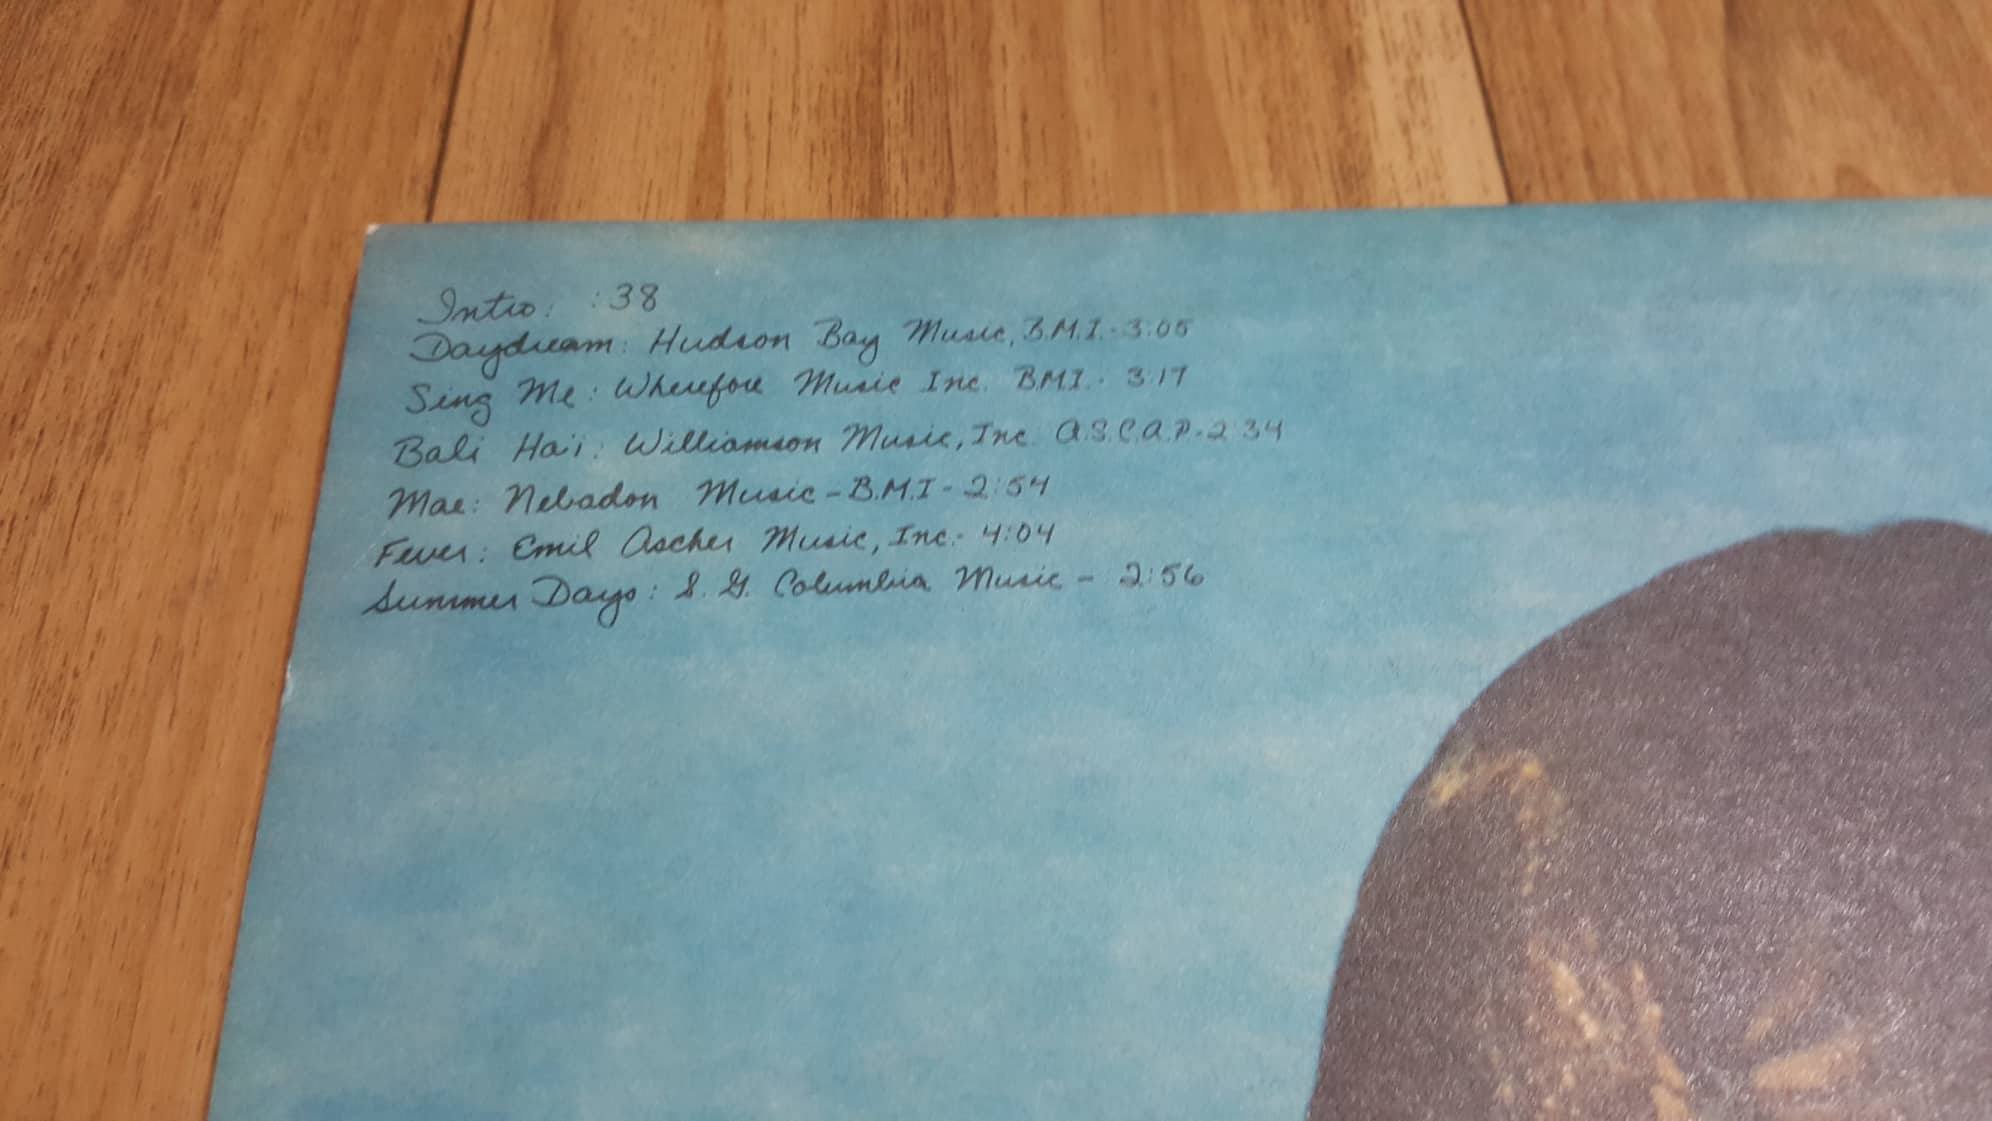 Intro: :38
Daydream: Hudson Bay Music, B.M.I. - 3:05
Sing Me: Wherefore Music Inc. B.M.I. - 3:17
Bali Ha'i: Williamson Music, Inc. A.S.C.A.P. - 2:34
Mae: Nebadon Music - B.M.I - 2:54
Fever: Emil Ascher Music, Inc. - 4:04
Summer Days: S. G. Columbia Music - 2:56